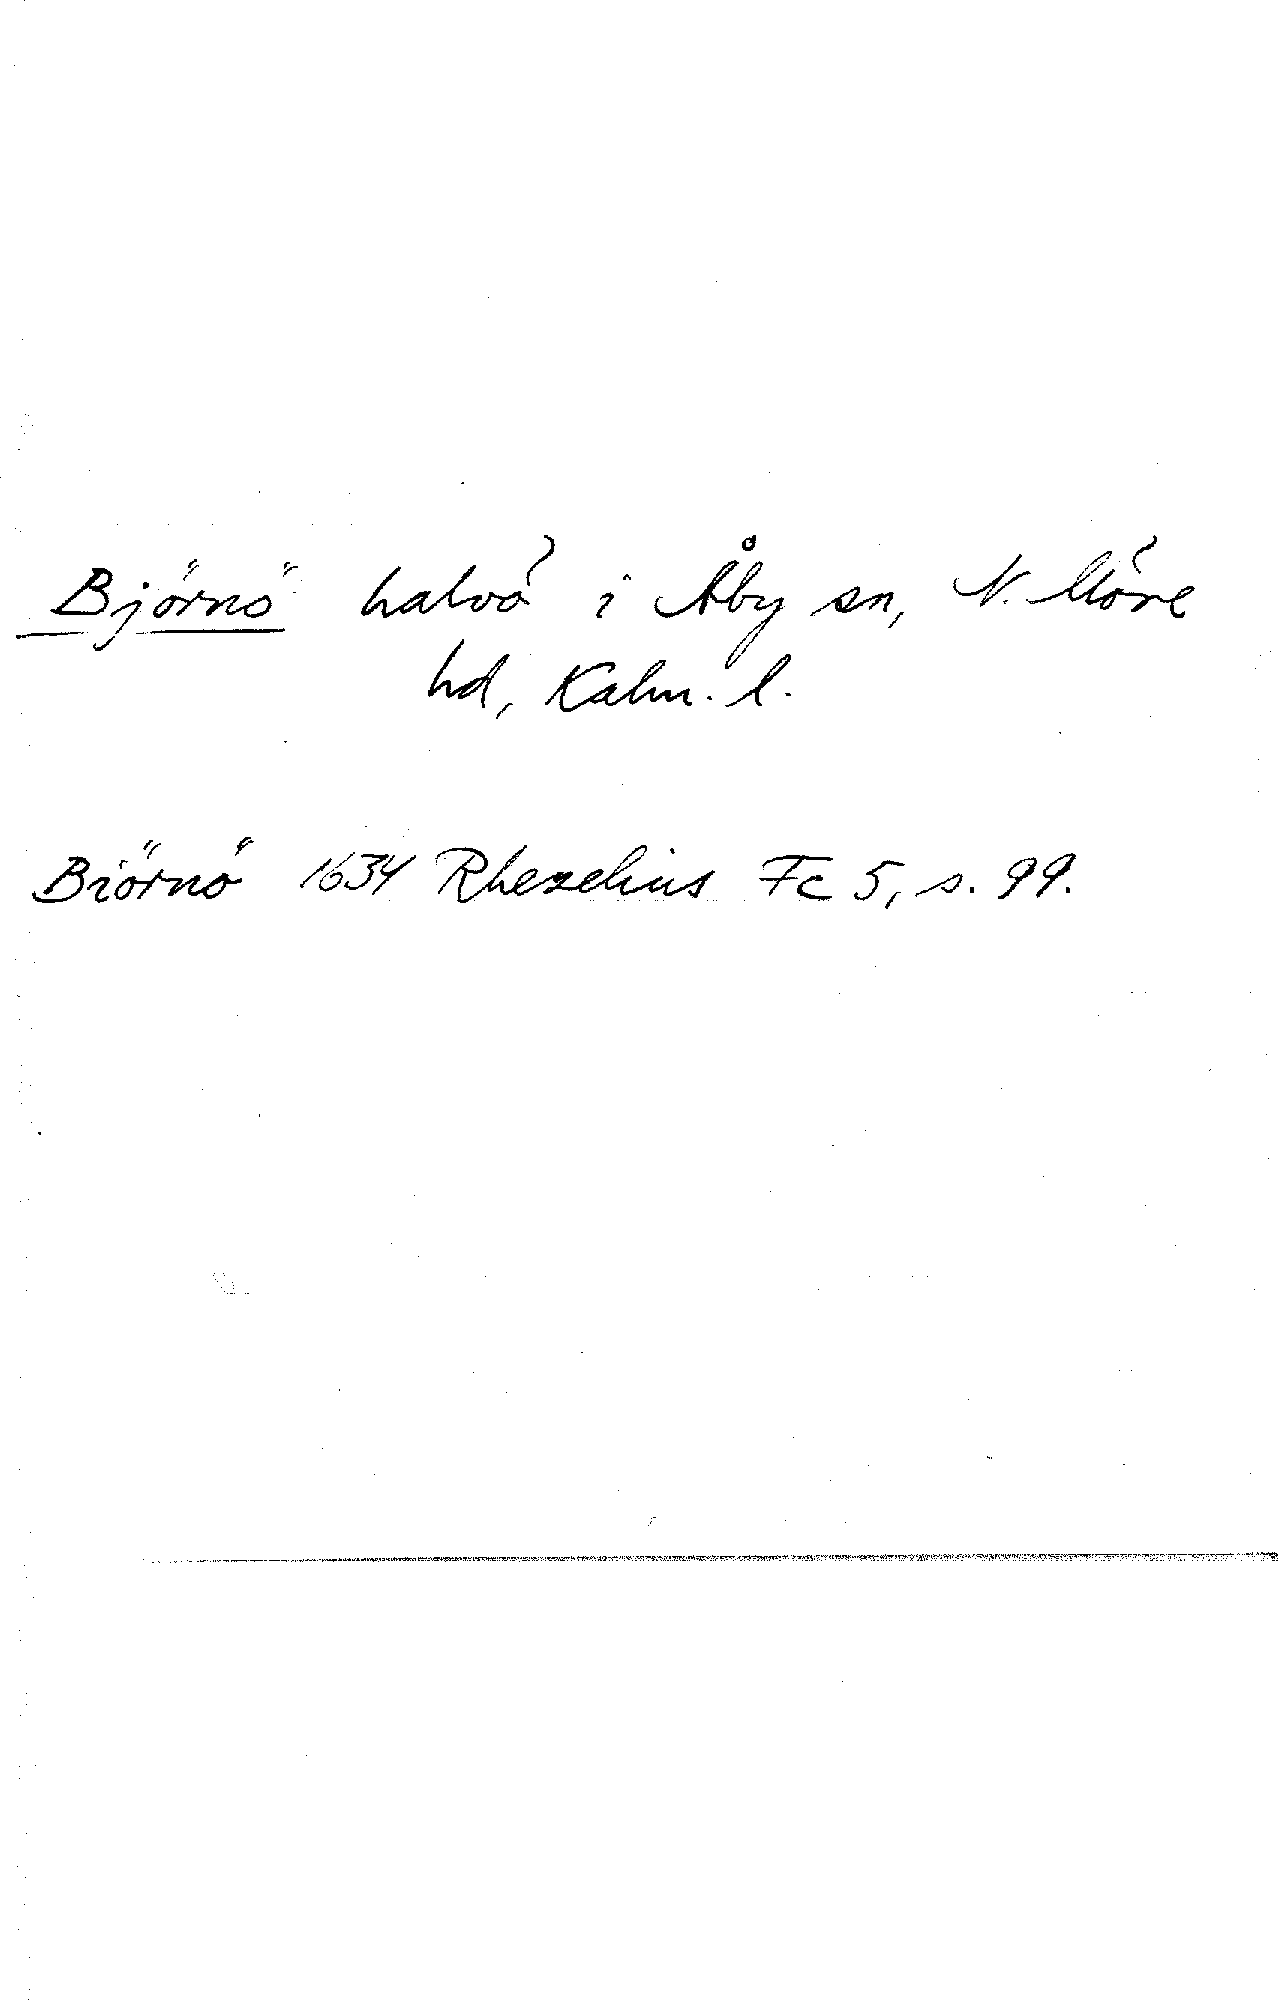 Björnö halvö i Åby sn, N. Möre
hd, Kalm. l.
Biörnö 1634 Rhezelius Fc 5, s. 99.